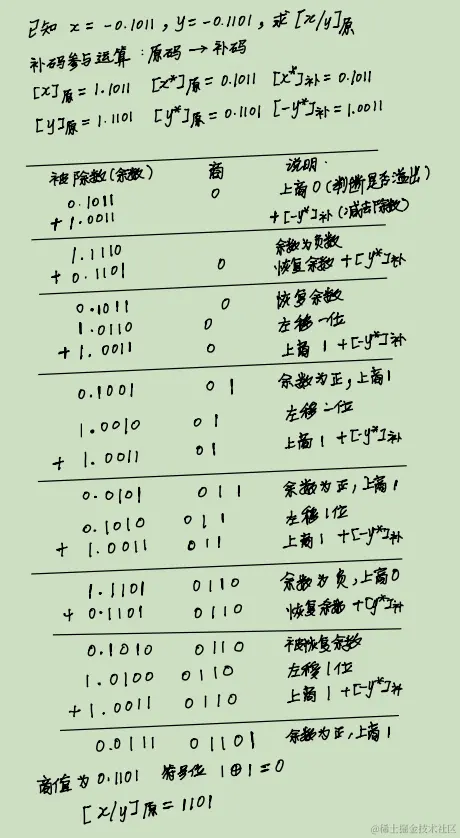 已知 x = -0.1011, y = -0.1101, 求 [x/y]原
补码参与运算：原码 → 补码
[x]原 = 1.1011 [x*]原 = 0.1011 [x*]补 = 0.1011
[y]原 = 1.1101 [y*]原 = 0.1101 [-y*]补 = 1.0011
被除数(余数) 商 说明·
0.1011 0 上商0(判断是否溢出)
+ 1.0011 +[-y*]补 (减去除数)
1.1110 余数为负数
+ 0.1101 0 恢复余数 +[y*]补
0.1011 0 恢复余数
1.0110 0 左移一位
+ 1.0011 0 上商 1 +[-y*]补
0.1001 0 1 余数为正,上商1
1.0010 0 1 左移一位
+ 1.0011 0 1 上商 1 +[-y*]补
0.0101 0 1 1 余数为正,上商1
0.1010 0 1 1 左移1位
+ 1.0011 0 1 1 上商 1 +[-y*]补
1.1101 0110 余数为负,上商0
+ 0.1101 0110 恢复余数 +[y*]补
0.1010 0110 被恢复余数
1.0100 0110 左移1位
+ 1.0011 0110 上商 1 +[-y*]补
0.0111 01101 余数为正,上商1
商值为 0.1101 符号位 1⊕1=0
[x/y]原 = 1101
@稀土掘金技术社区